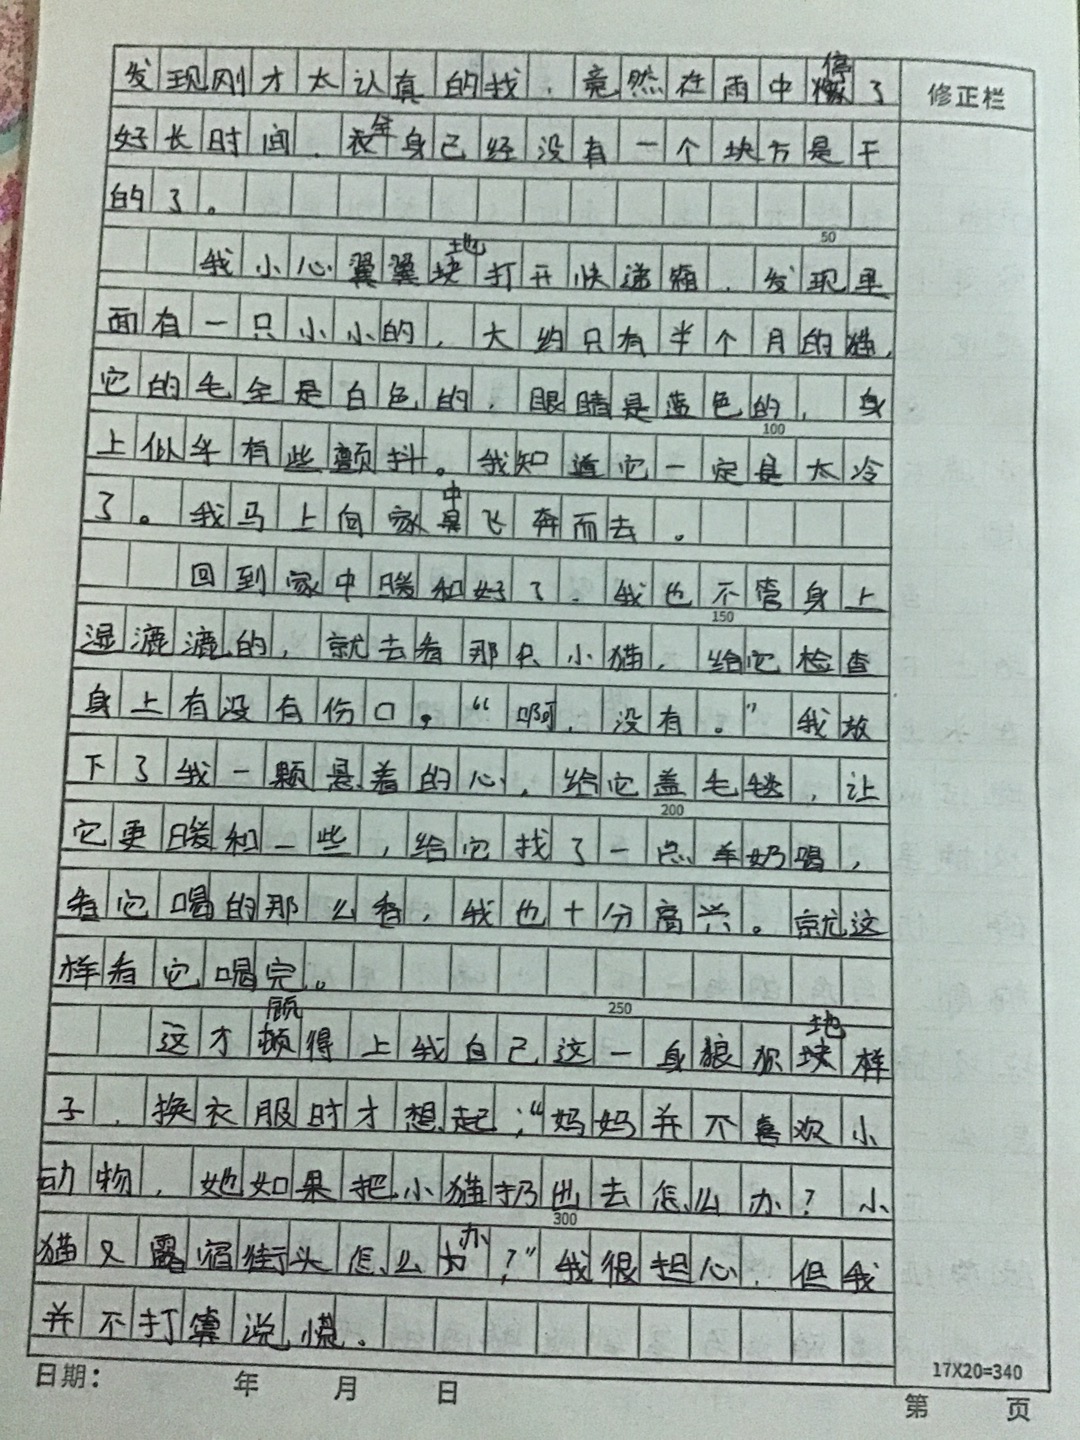 发现刚才太认真的找，竟然在雨中停了
修正栏
好长时间，我全身已经没有一个块方是干
的了。
50
我小心翼翼地打开快递箱，发现里
面有一只小小的，大约只有半个月的猫，
它的毛全是白色的，眼睛是蓝色的，身
100
上似乎有些颤抖。我知道它一定是太冷
了。我马上向家中飞奔而去。
回到家中暖和好了，我也不管身上
150
湿漉漉的，就去看那只小猫，给它检查
身上有没有伤口，“啊，没有。”我放
下了我一颗悬着的心，给它盖毛毯，让
200
它更暖和一些，给它找了一点羊奶喝，
看它喝的那么香，我也十分高兴。就这
样看它喝完。
250
这才顾得上我自己这一身狼狈地样
子，换衣服时才想起；“妈妈并不喜欢小
动物，她如果把小猫扔出去怎么办？小
300
猫又露宿街头怎么办？”我很担心，但我
并不打算说慌。
17X20=340
日期： 年 月 日
第 页